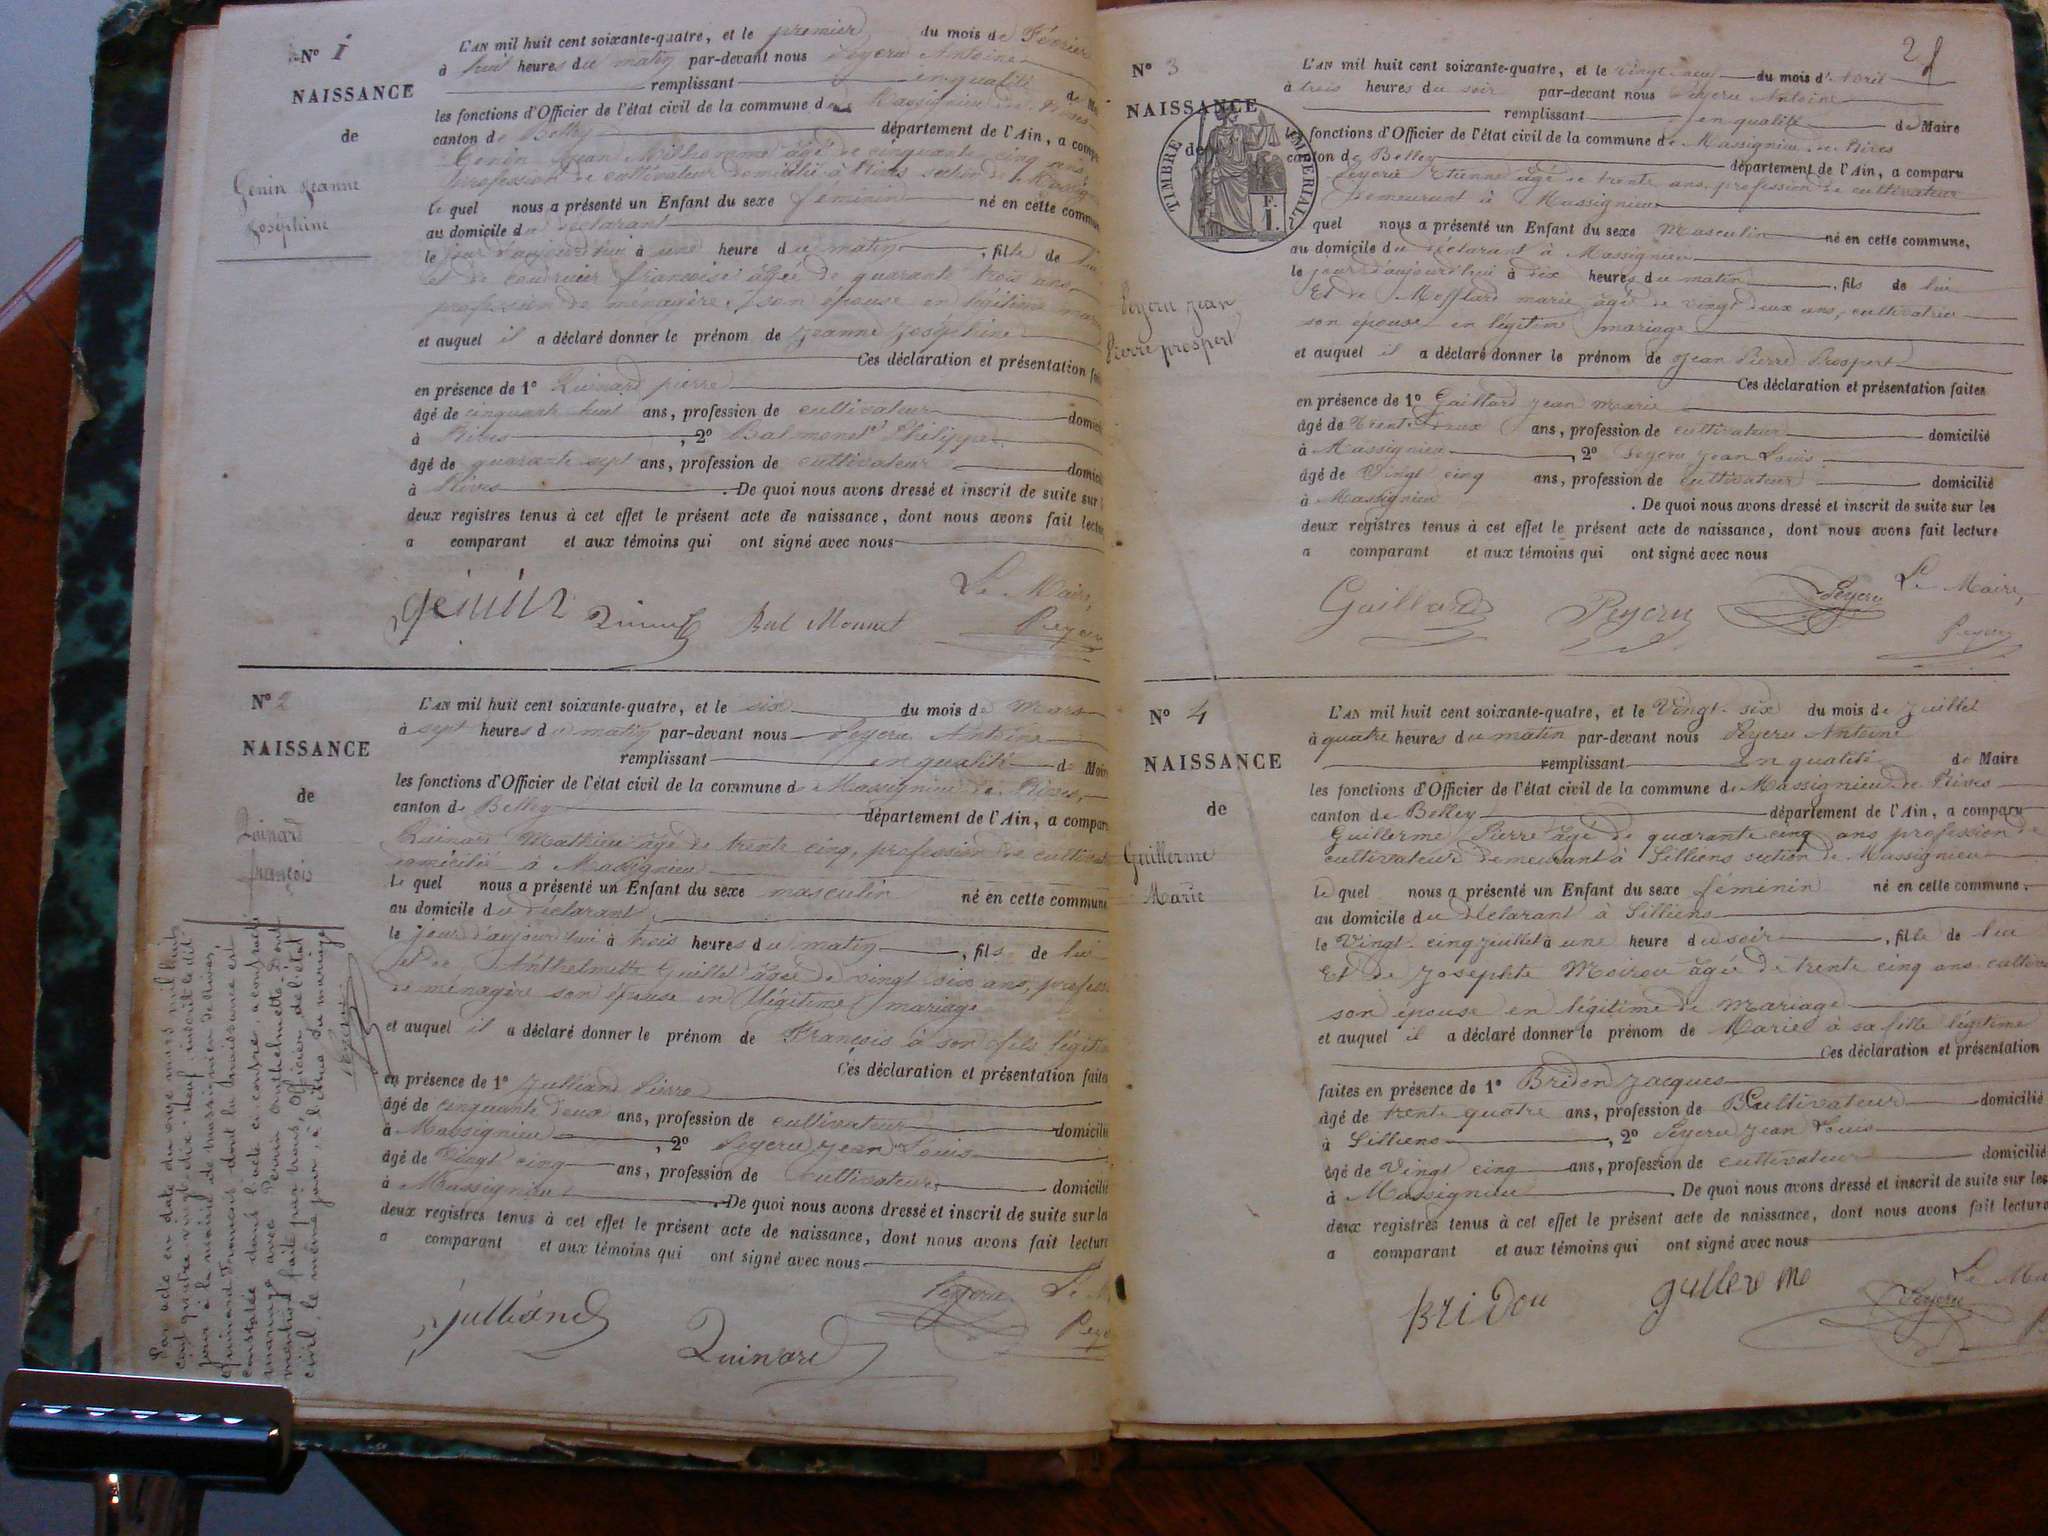 N° 1
NAISSANCE
de
Genin Jeanne
Joséphine
L'AN mil huit cent soixante-quatre, et le premier du mois de Février
à huit heures du matin par-devant nous Peyeru Antoine
remplissant en qualité de Mai
les fonctions d'Officier de l'état civil de la commune de Massignieu de Rives
canton de Belley département de l'Ain, a comp
Genin Jean âgé de cinquante cinq ans,
profession de cultivateur domicilié à Rives section de Massig
le quel nous a présenté un Enfant du sexe féminin né en cette commune
au domicile du déclarant
le jour d'aujourd'hui à une heure du matin, fille de lui
et de françoise âgée de quarante trois ans,
profession de ménagère, son épouse en légitime mari
et auquel il a déclaré donner le prénom de Jeanne Joséphine
Ces déclaration et présentation fai
en présence de 1° Quinard pierre
âgé de cinquante huit ans, profession de cultivateur domici
à Rives, 2° Balmonet Philippe
âgé de quarante sept ans, profession de cultivateur domici
à Rives. De quoi nous avons dressé et inscrit de suite sur
deux registres tenus à cet effet le présent acte de naissance, dont nous avons fait lectur
a comparant et aux témoins qui ont signé avec nous
Le Maire,
génin Quinard Bal Monnet Peyeru
N° 2
NAISSANCE
de
Quinard
françois
L'AN mil huit cent soixante-quatre, et le six du mois de Mars
à sept heures du matin par-devant nous Peyeru Antoine
remplissant en qualité de Maire
les fonctions d'Officier de l'état civil de la commune de Massignieu de Rives,
canton de Belley département de l'Ain, a compar
Quinard Mathieu âgé de trente cinq, profession de cultivat
domicilié à Massignieu
le quel nous a présenté un Enfant du sexe masculin né en cette commune
au domicile du déclarant
le jour d'aujourd'hui à trois heures du matin, fils de lui
et de Anthelmette Guillet âgée de vingt six ans, profess
de ménagère son épouse en légitime mariage
et auquel il a déclaré donner le prénom de François à son fils légitim
Ces déclaration et présentation faites
en présence de 1° Julliand Pierre
âgé de cinquante deux ans, profession de cultivateur domicilié
à Massignieu, 2° Peyeru Jean Louis
âgé de Vingt cinq ans, profession de cultivateur domicilié
à Massignieu. De quoi nous avons dressé et inscrit de suite sur les
deux registres tenus à cet effet le présent acte de naissance, dont nous avons fait lecture
a comparant et aux témoins qui ont signé avec nous
Peyeru Le M
Julliand Quinard Peye
Par acte en date du onze mars mil huit
cent quatre vingt dix-neuf inscrit le dit
jour à la mairie de Massignieu de Rives,
Quinard François dont la naissance est
constatée dans l'acte ci-contre, a contracté
mariage avec Perrin anthelmette Dont
mention faite par nous, Officier de l'état
civil, le même jour, à l'acte du mariage
28
N° 3
NAISSANCE
de
TIMBRE IMPÉRIAL
F.
1.
Peyeru Jean
Pierre prospert
L'AN mil huit cent soixante-quatre, et le vingt neuf du mois d'Avril
à trois heures du soir par-devant nous Peyeru Antoine
remplissant en qualité de Maire
les fonctions d'Officier de l'état civil de la commune de Massignieu de Rives
canton de Belley département de l'Ain, a comparu
Peyeru Etienne âgé de trente ans, profession de cultivateur
Demeurant à Massignieu
le quel nous a présenté un Enfant du sexe Masculin né en cette commune,
au domicile du déclarant à Massignieu
le jour d'aujourd'hui à dix heures du matin, fils de lui
Et de marie âgé de vingt deux ans, cultivatrice
son épouse en légitime mariage
et auquel il a déclaré donner le prénom de Jean Pierre Prospert
Ces déclaration et présentation faites
en présence de 1° Gaillard Jean Marie
âgé de Trente Deux ans, profession de cultivateur domicilié
à Massignieu, 2° Peyeru Jean Louis
âgé de Vingt cinq ans, profession de cultivateur domicilié
à Massignieu. De quoi nous avons dressé et inscrit de suite sur les
deux registres tenus à cet effet le présent acte de naissance, dont nous avons fait lecture
a comparant et aux témoins qui ont signé avec nous
Gaillard Peyeru Peyeru Le Maire,
Peyeru
N° 4
NAISSANCE
de
Guillerme
Marie
L'AN mil huit cent soixante-quatre, et le Vingt six du mois de Juillet
à quatre heures du matin par-devant nous Peyeru Antoine
remplissant en qualité de Maire
les fonctions d'Officier de l'état civil de la commune de Massignieu de Rives
canton de Belley département de l'Ain, a comparu
Guillerme Pierre âgé de quarante cinq ans profession de
cultivateur demeurant à Lilliens section de Massignieu
le quel nous a présenté un Enfant du sexe féminin né en cette commune,
au domicile du déclarant à Lilliens
le Vingt cinq Juillet à une heure du soir, fille de lui
Et de Josephte Moirou âgée de trente cinq ans cultiva
son épouse en légitime de Mariage
et auquel il a déclaré donner le prénom de Marie à sa fille légitime
Ces déclaration et présentation
faites en présence de 1° Bridon Jacques
âgé de trente quatre ans, profession de Cultivateur domicilié
à Lilliens, 2° Peyeru Jean Louis
âgé de Vingt cinq ans, profession de cultivateur domicilié
à Massignieu. De quoi nous avons dressé et inscrit de suite sur les
deux registres tenus à cet effet le présent acte de naissance, dont nous avons fait lecture
a comparant et aux témoins qui ont signé avec nous
Le Ma
Bridon gullerme Peyeru